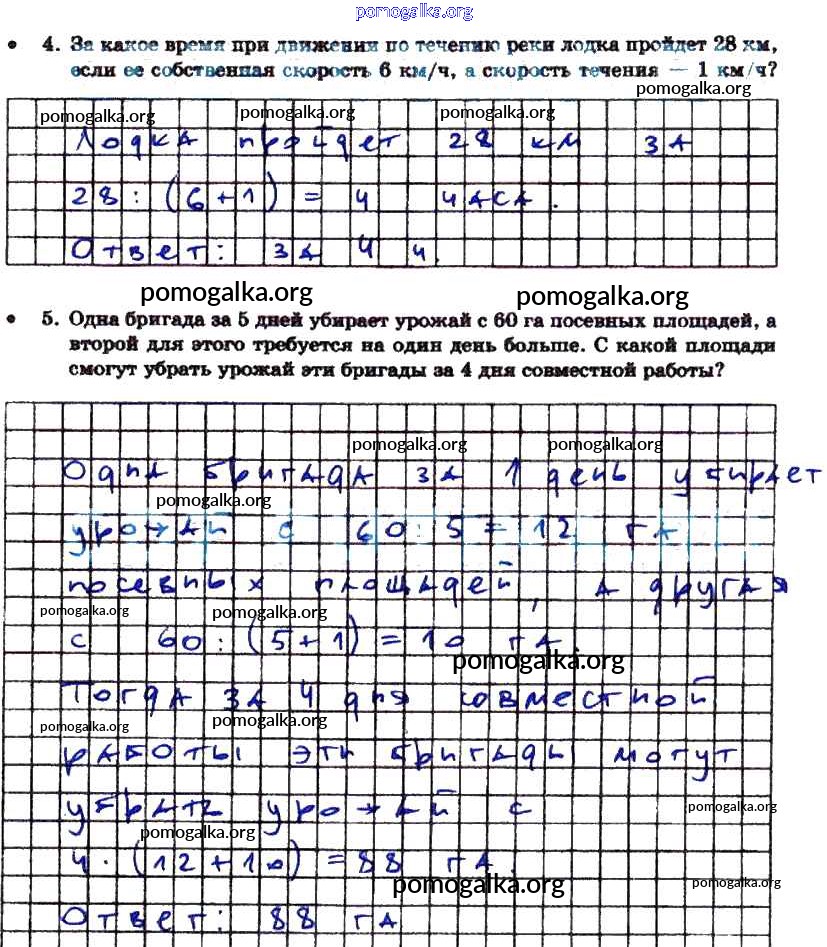 pomogalka.org
• 4. За какое время при движении по течению реки лодка пройдет 28 км,
если ее собственная скорость 6 км/ч, а скорость течения — 1 км/ч?
pomogalka.org
pomogalka.org pomogalka.org pomogalka.org
Лодка пройдет 28 км за
28 : (6 + 1) = 4 часа.
Ответ: за 4 ч.
pomogalka.org pomogalka.org
• 5. Одна бригада за 5 дней убирает урожай с 60 га посевных площадей, а
второй для этого требуется на один день больше. С какой площади
смогут убрать урожай эти бригады за 4 дня совместной работы?
pomogalka.org pomogalka.org
Одна бригада за 1 день убирает
pomogalka.org
урожай с 60 : 5 = 12 га
посевных площадей, а другая
pomogalka.org pomogalka.org
с 60 : (5 + 1) = 10 га
pomogalka.org
Тогда за 4 дня совместной
pomogalka.org pomogalka.org
работы эти бригады могут
убрать урожай с
pomogalka.org
pomogalka.org
4 · (12 + 10) = 88 га.
pomogalka.org pomogalka.org
Ответ: 88 га